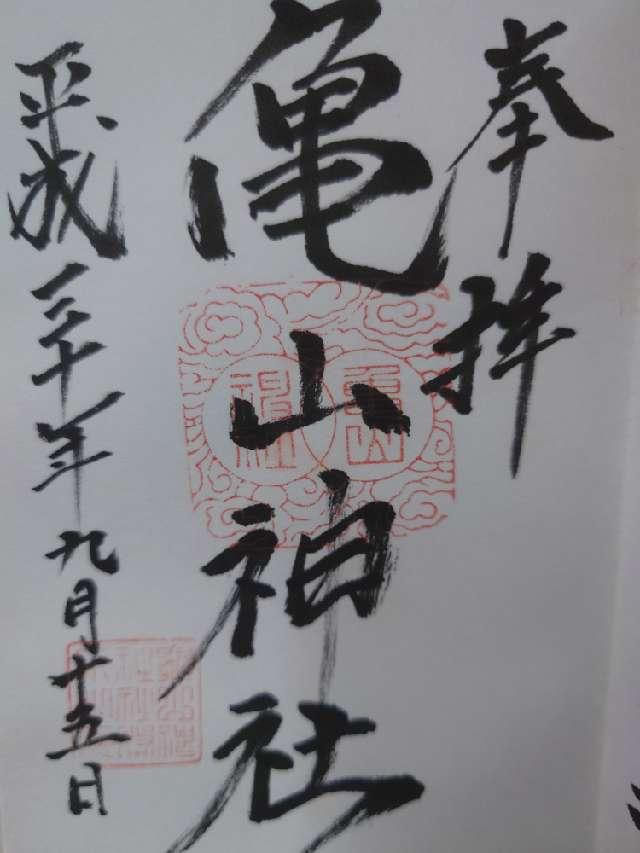 奉拝
亀山神社
平成三十年九月十五日